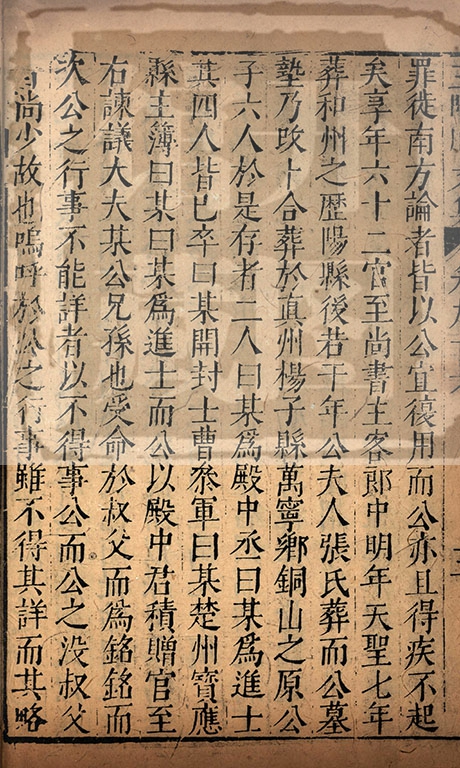 罪徙南方論者皆以公宜復用而公亦且得疾不起
矣享年六十二官至尚書主客郎中明年天聖七年
葬和州之歷陽縣後若干年公夫人張氏葬而公墓
墊乃改卜合葬於真州楊子縣萬寧鄉銅山之原公
子六人於是存者二人曰某爲殿中丞曰某爲進士
其四人皆已卒曰某開封士曹叅軍曰某楚州寶應
縣主簿曰某曰某爲進士而公以殿中君積贈官至
右諫議大夫某公兄孫也受命於叔父而爲銘銘而
次公之行事不能詳者以不得事公而公之没叔父
尚少故也嗚呼於公之行事雖不得其詳而其略